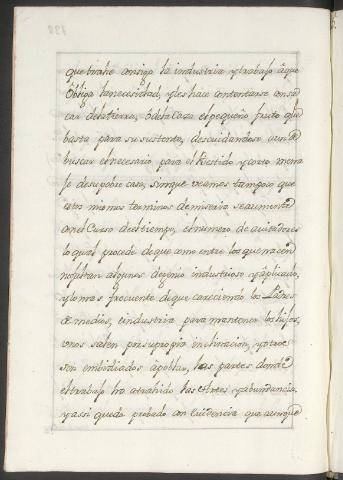 que trahe consigo la industria y trabajo â que
Obliga la necesidad, y les hace contentarse con sa
car de la tierra, ô de la Caza el pequeño fruto que
basta para su sustento, descuidandose aun de
buscar el necesario para el Vestido y corto mena
Je de su pobre casa, sin que veamos tampoco que
estos mismos terminos de miseria se aumente
en el Curso del tiempo, el numero de avitadores
lo qual procede de que como entre los que nacen
no faltan algunos de genio industrioso y aplicado,
y lo mas frecuente de que careciendo los Padres
de medios, e industria para mantener los hijos,
unos salen por su propia inclinacion, y otros
son embidiados â poblar, las partes donde
el trabajo ha atrahido las Artes y abundancia,
y assi queda probado con Evidencia que aunque